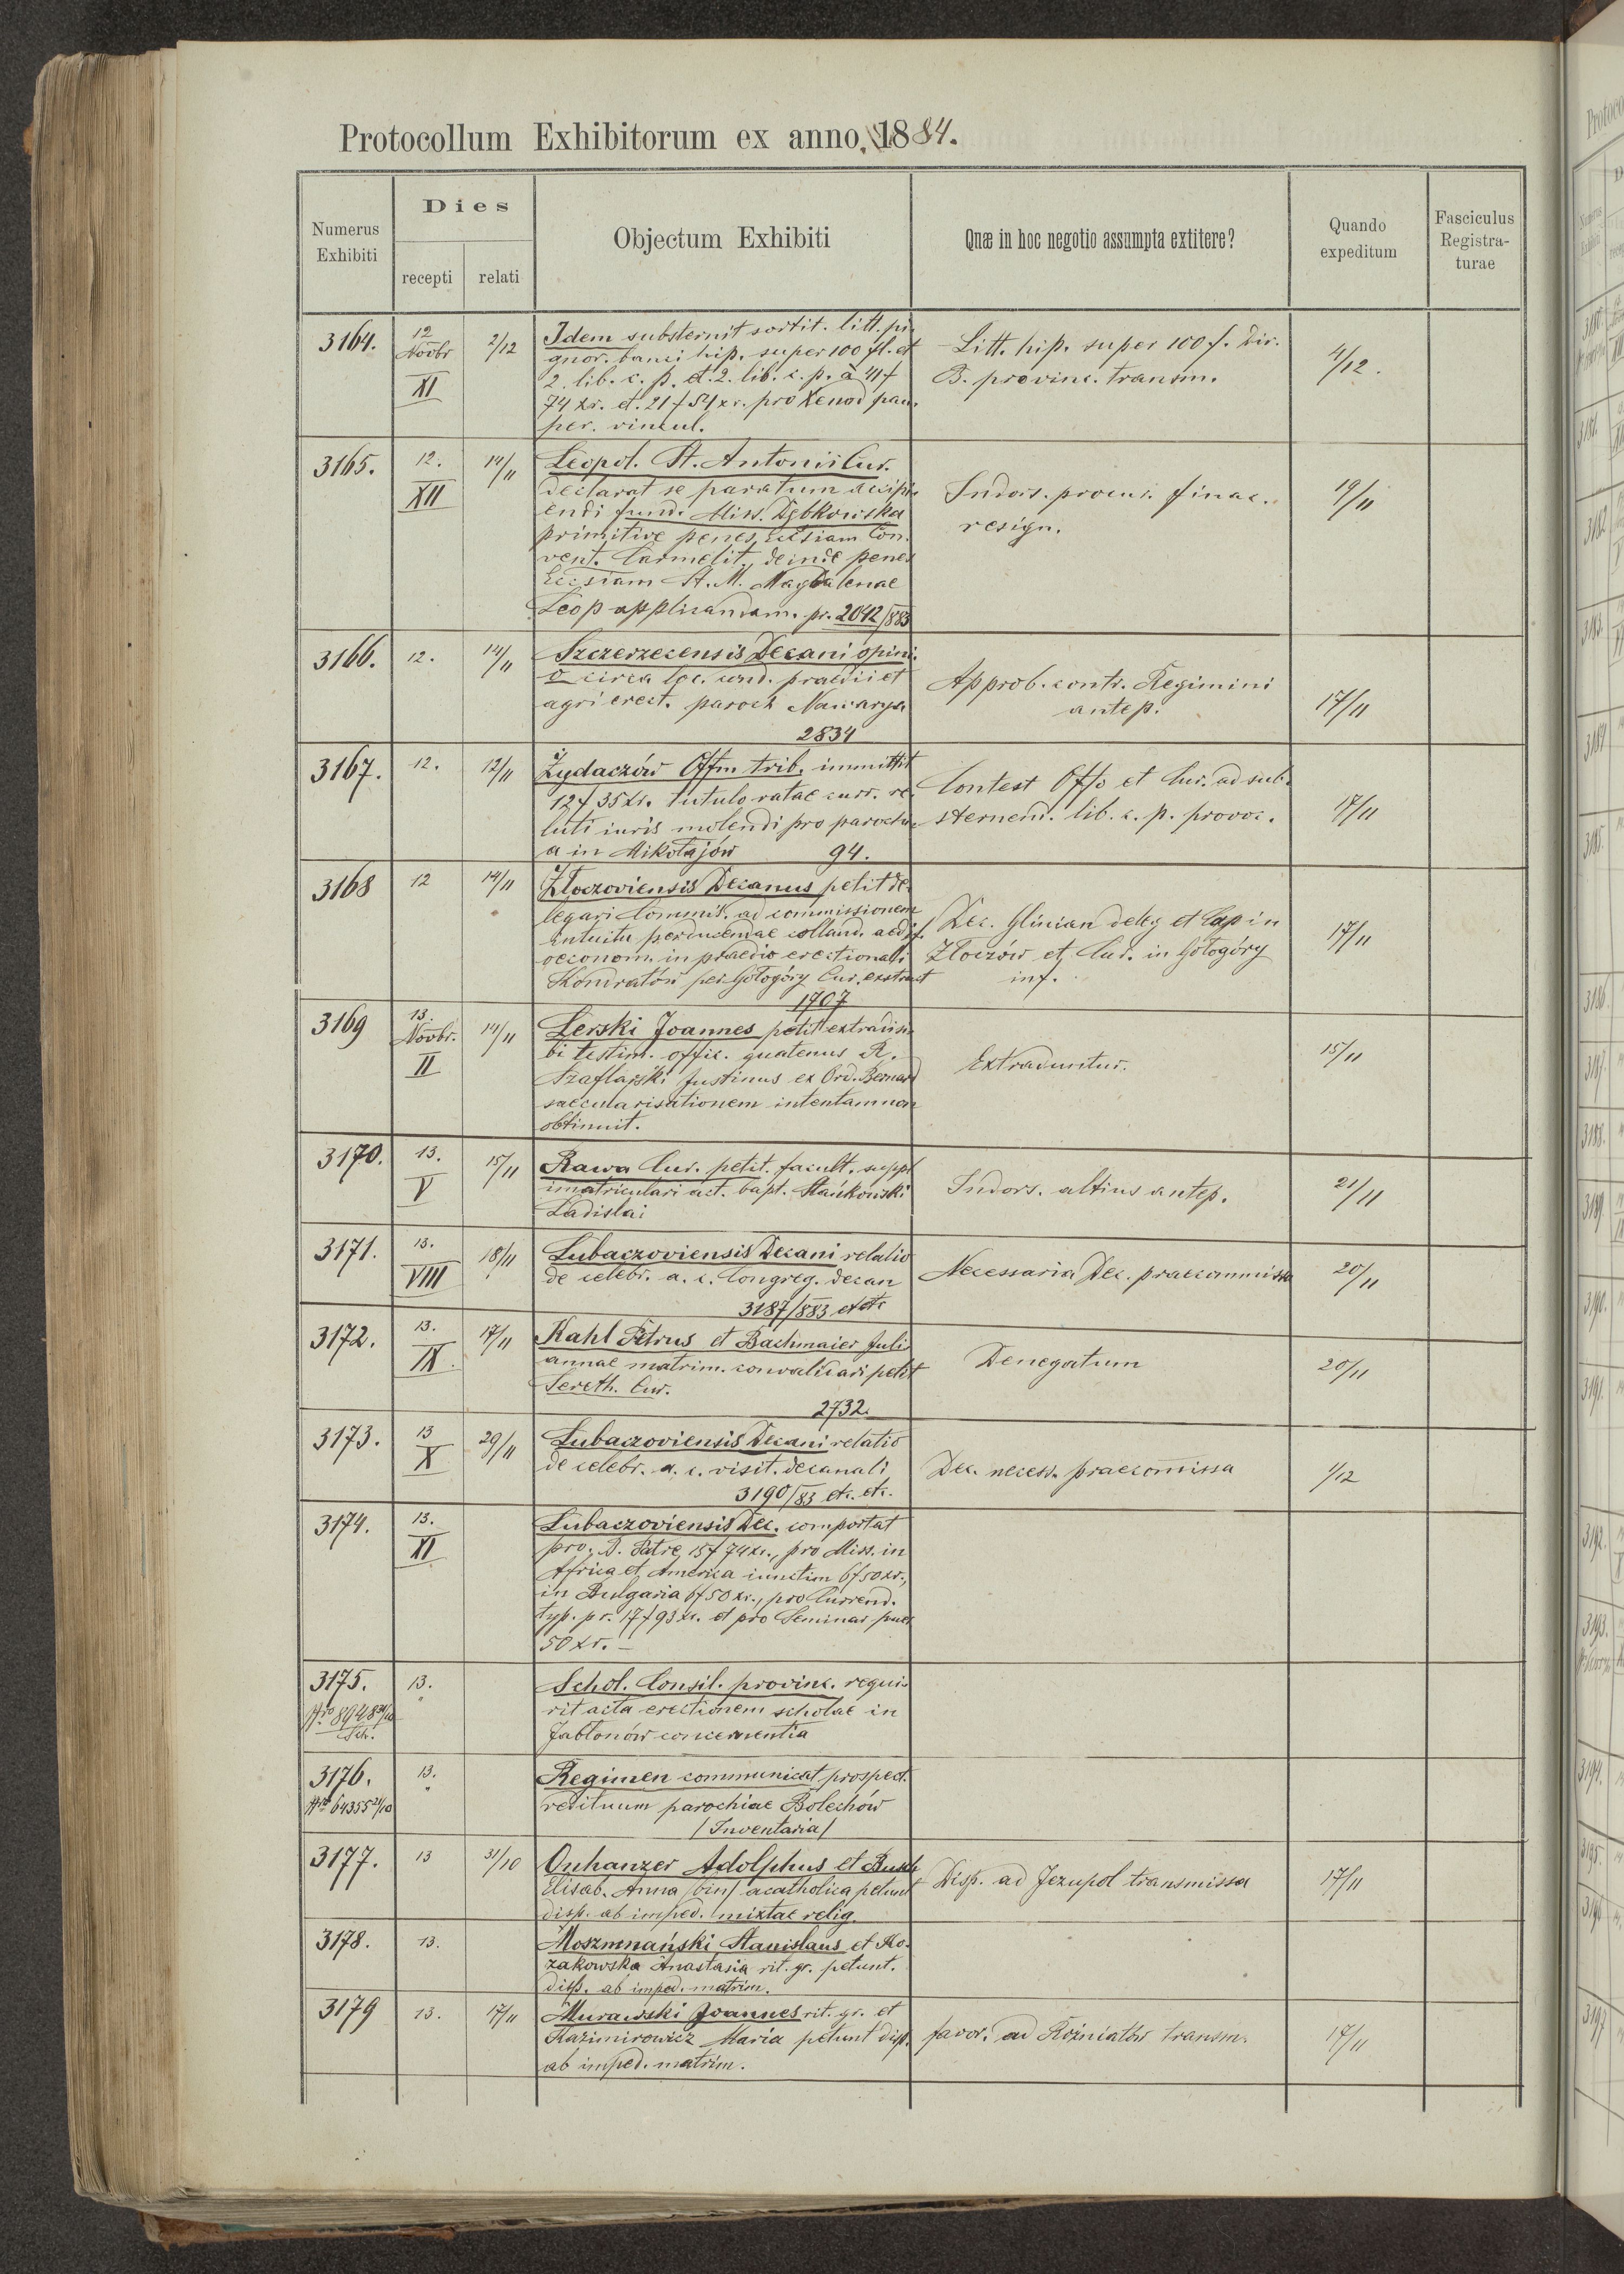 Protocollum Exhibitorum ex anno 1884.
Numerus Exhibiti
Dies
recepti
relati
Objectum Exhibiti
Quæ in hoc negotio assumpta extitere?
Quando expeditum
Fasciculus Registra-
turae
3164.
12
Novbr
XI
2/12
Idem substernit sortit. litt. pi-
gnor. banci hip. super 100 fl. et
2. lib. c. p. et. 2. lib. c. p. à 41 f
74 xr. et. 21 f 54 xr. pro Xenod pau-
per. vincul.
Litt. hip. super 100 f. Dir.
B. provinc. transm.
4/12.
3165.
12.
XII
14/11
Leopol. St. Antonii Cur.
declarat se paratum accipi-
endi fund. Miss. Dębkowska
primitive penes Ecclsiam Con-
vent. Carmelit. deinde penes
Eccsiam St. M. Magdalenae
Leop applicandam. pr. 2042/883
Indors. procur. finac.
resign.
19/11
3166.
12.
14/11
Szczerzecensis Decani opini-
o circa loc. cond. praedii et
agri erect. paroch Nawarya
2834
Approb. contr. Regimini
antep.
17/11
3167.
12.
12/11
Żydaczów Offm trib. immittit
12 f 35 xr. tutulo ratae curr. re-
luti iuris molendi pro parochi-
a in Mikołajów 94.
Contest Offo et Cur. ad sub-
sternend. lib. c. p. provoc.
17/11
3168
12
14/11
Złoczoviensis Decanus petit de-
legari Commis. ad commissionem
intuitu perducendae colland. aedif.
oeconom. in praedio erectionali
Kondratów per Gołogóry Cur. exstruct
1707
Dec. Glinian deleg et Cap in
Złoczów et Cur. in Gołogóry
inf.
17/11
3169
13.
Novbr.
II
14/11
Lerski Joannes petit extradi si-
bi testim. offic. quatenus R.
Szaflarski Justinus ex Ord. Bernard
saecularisationem intentam non
obtinuit.
Extraduntur.
15/11
3170.
13.
V
15/11
Rawa Cur. petit. facult. suppl
imatriculari act. bapt. Stańkowski
Ladislai
Indors. altius antep.
21/11
3171.
13.
VIII
18/11
Lubaczoviensis Decani relatio
de celebr. a. c. Congreg. decan
3187/883 etc
Necessaria Dec. praecommissa
20/11
3172.
13.
IX.
17/11
Kahl Petrus et Bachmaier Juli-
annae matrim. convalidari petit
Sereth. Cur.
2732.
Denegatum
20/11
3173.
13
X
29/11
Lubaczoviensis Decani relatio
de celebr. a. c. visit. decanali
3190/83 etc. etc.
Dec. necess. praecom̄issa
1/12
3174.
13.
XI
Lubaczoviensis Dec. comportat
pro. S. Patre 15 f 74 xr., pro Miss. in
Africa et America iunctim 6 f 50 xr.,
in Bulgaria 6 f 50 xr., pro Currend.
typ. pr. 17 f 93 xr. et pro Seminar. puer
50 xr. —
3175.
Nro 8948 31/10
Sch.
13.
"
Schol. Consil. provinc. requi-
rit acta erectionem scholae in
Jabłonów concernentia
3176.
Nro 64355 21/10
13.
"
Regimen communicat prospect.
redituum parochiae Bolechów
/Inventaria/
3177.
13
31/10
Onhanzer Adolphus et Busch
Elisab. Anna /bin/ acatholica petunt
disp. ab imped. mixtae relig.
Disp. ad Jezupol transmissa
17/11
3178.
13.
Moszmnański Stanislaus et Ko-
zakowska Anastasia rit. gr. petunt.
disp. ab imped. matrim.
3179
13.
17/11
Murawski Joannes rit. gr. et
Kazimirowicz Maria petunt disp.
ab imped. matrim.
favor. ad Rożniatów transm.
17/11